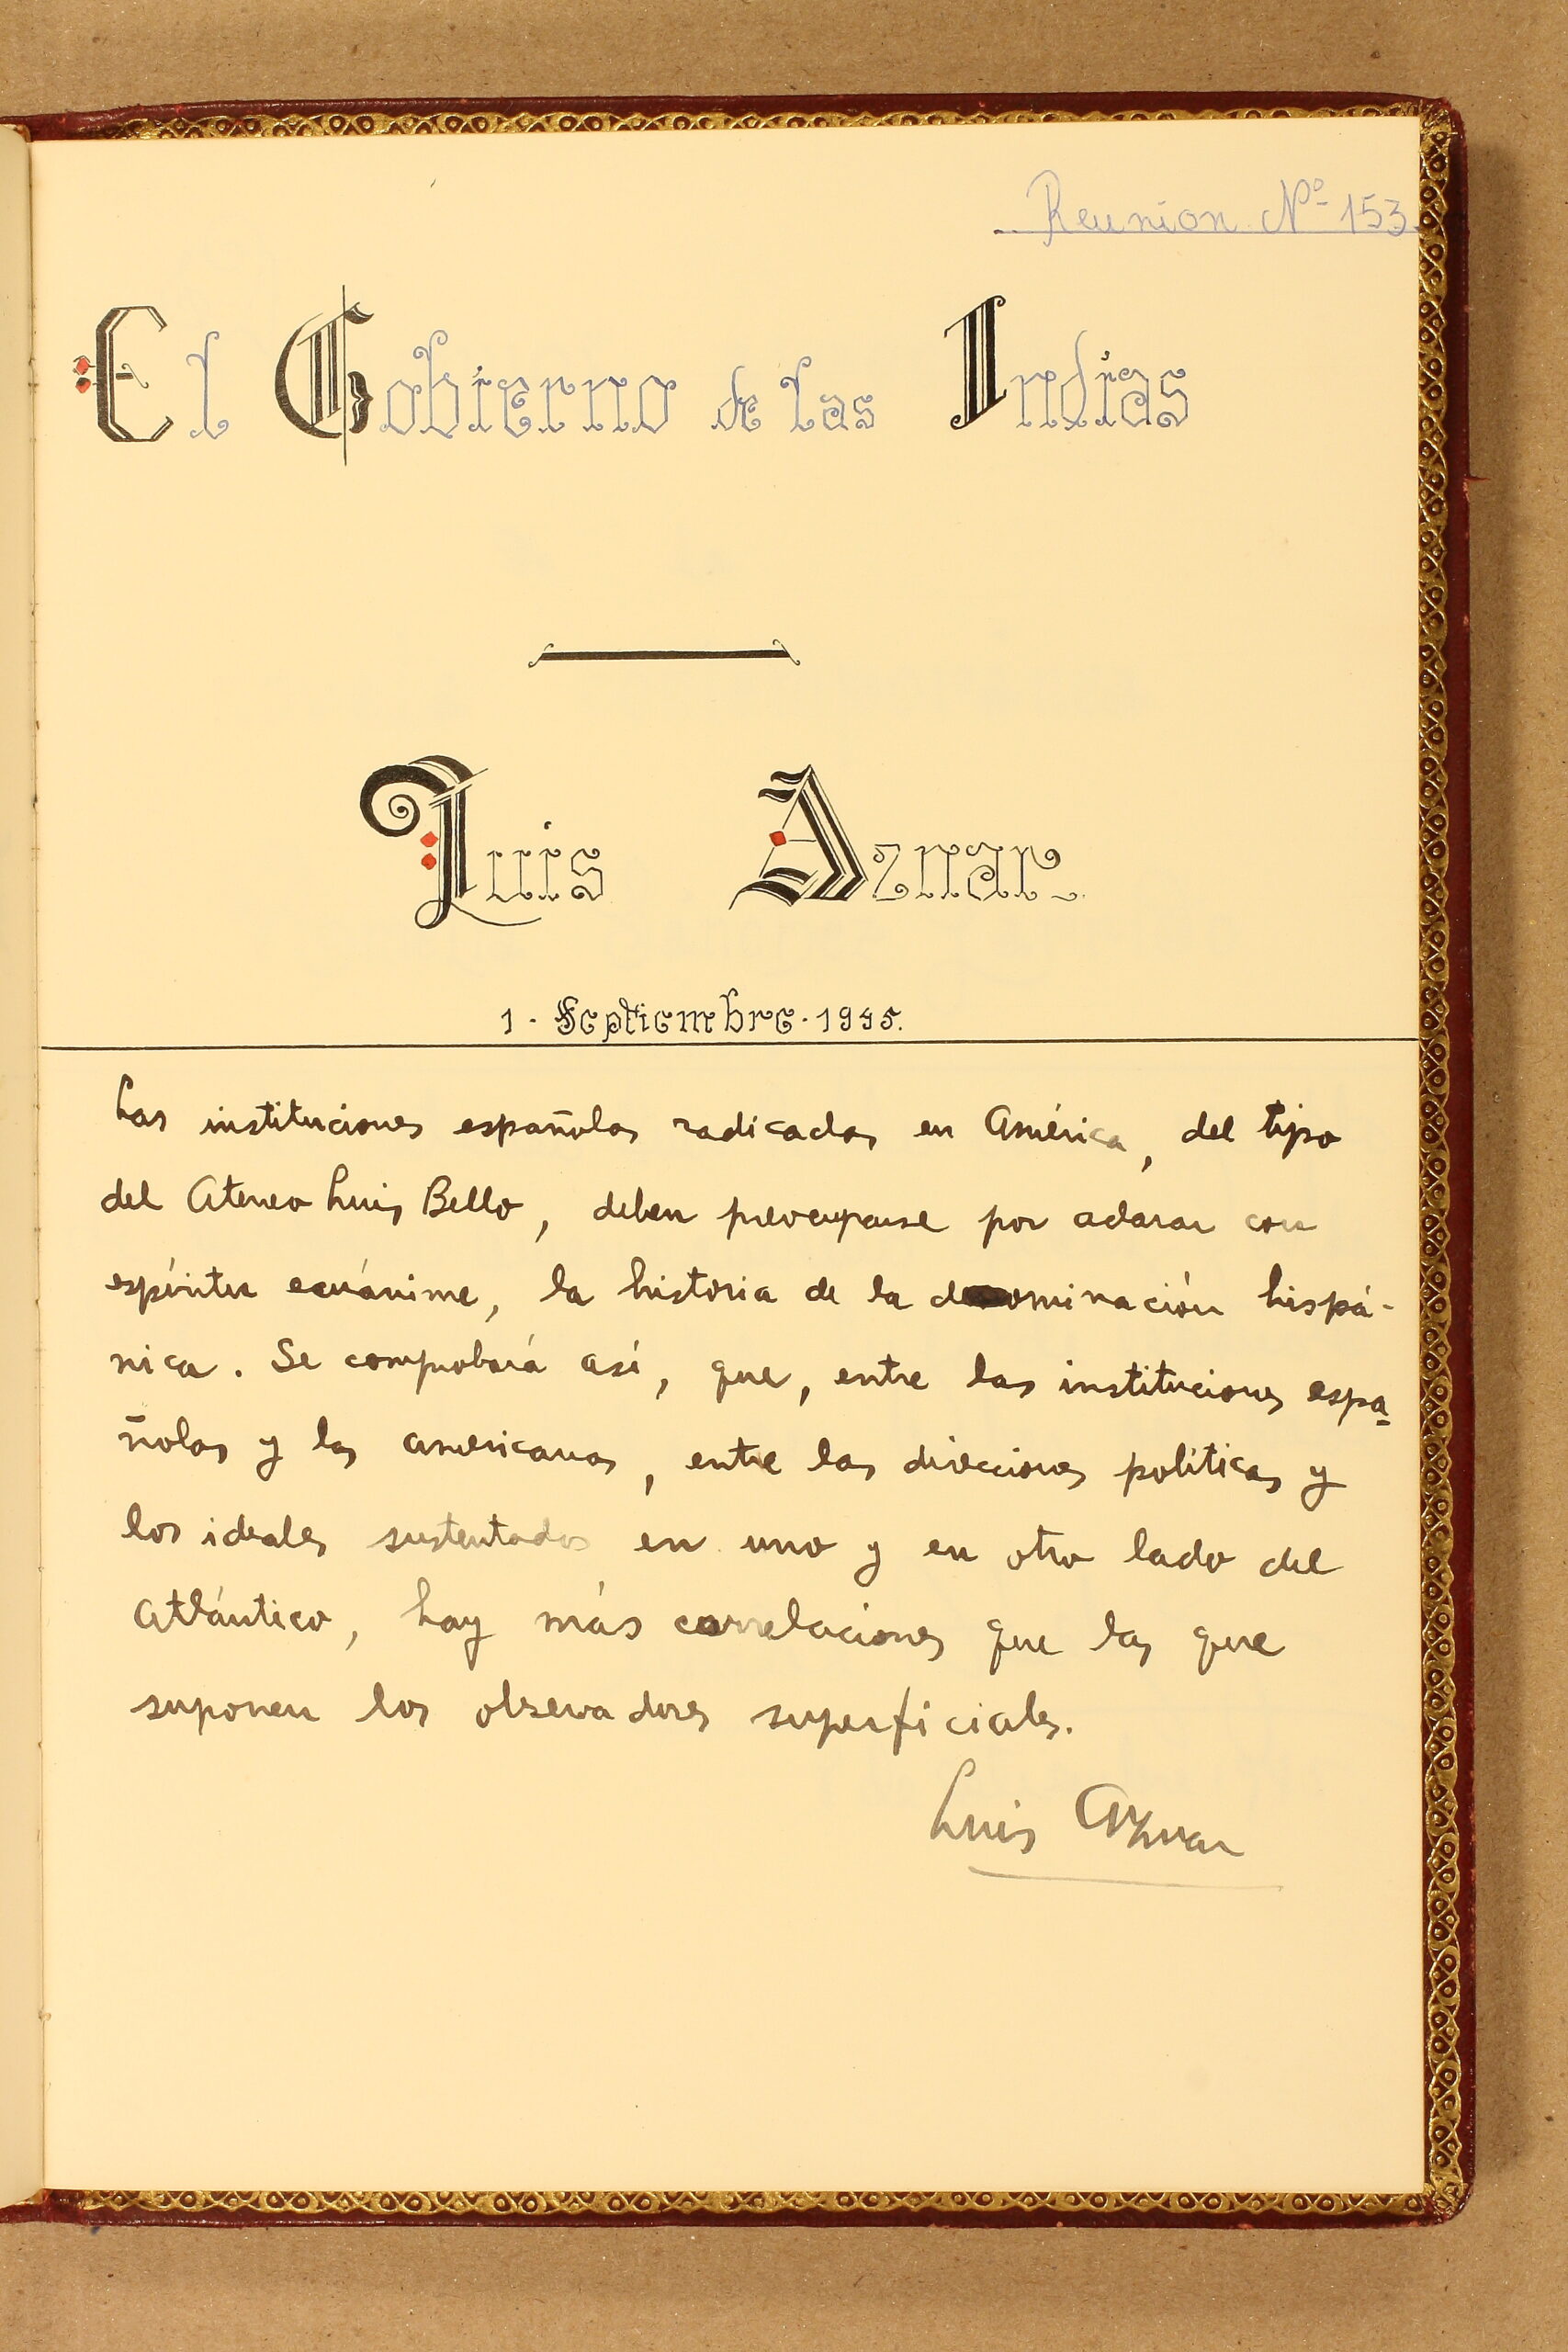 Reunion Nº 153.
El Gobierno de las Indias
Luis Aznar
1 - Septiembre - 1945.
Las instituciones españolas radicadas en América, del tipo
del Ateneo Luis Bello, deben preocuparse por aclarar con
espíritu ecuánime, la historia de la dominación hispá-
nica. Se comprobará así, que, entre las instituciones espa-
ñolas y las americanas, entre las direcciones políticas y
los ideales sustentados en uno y en otro lado del
Atlántico, hay más correlaciones que las que
suponen los observadores superficiales.
Luis Aznar